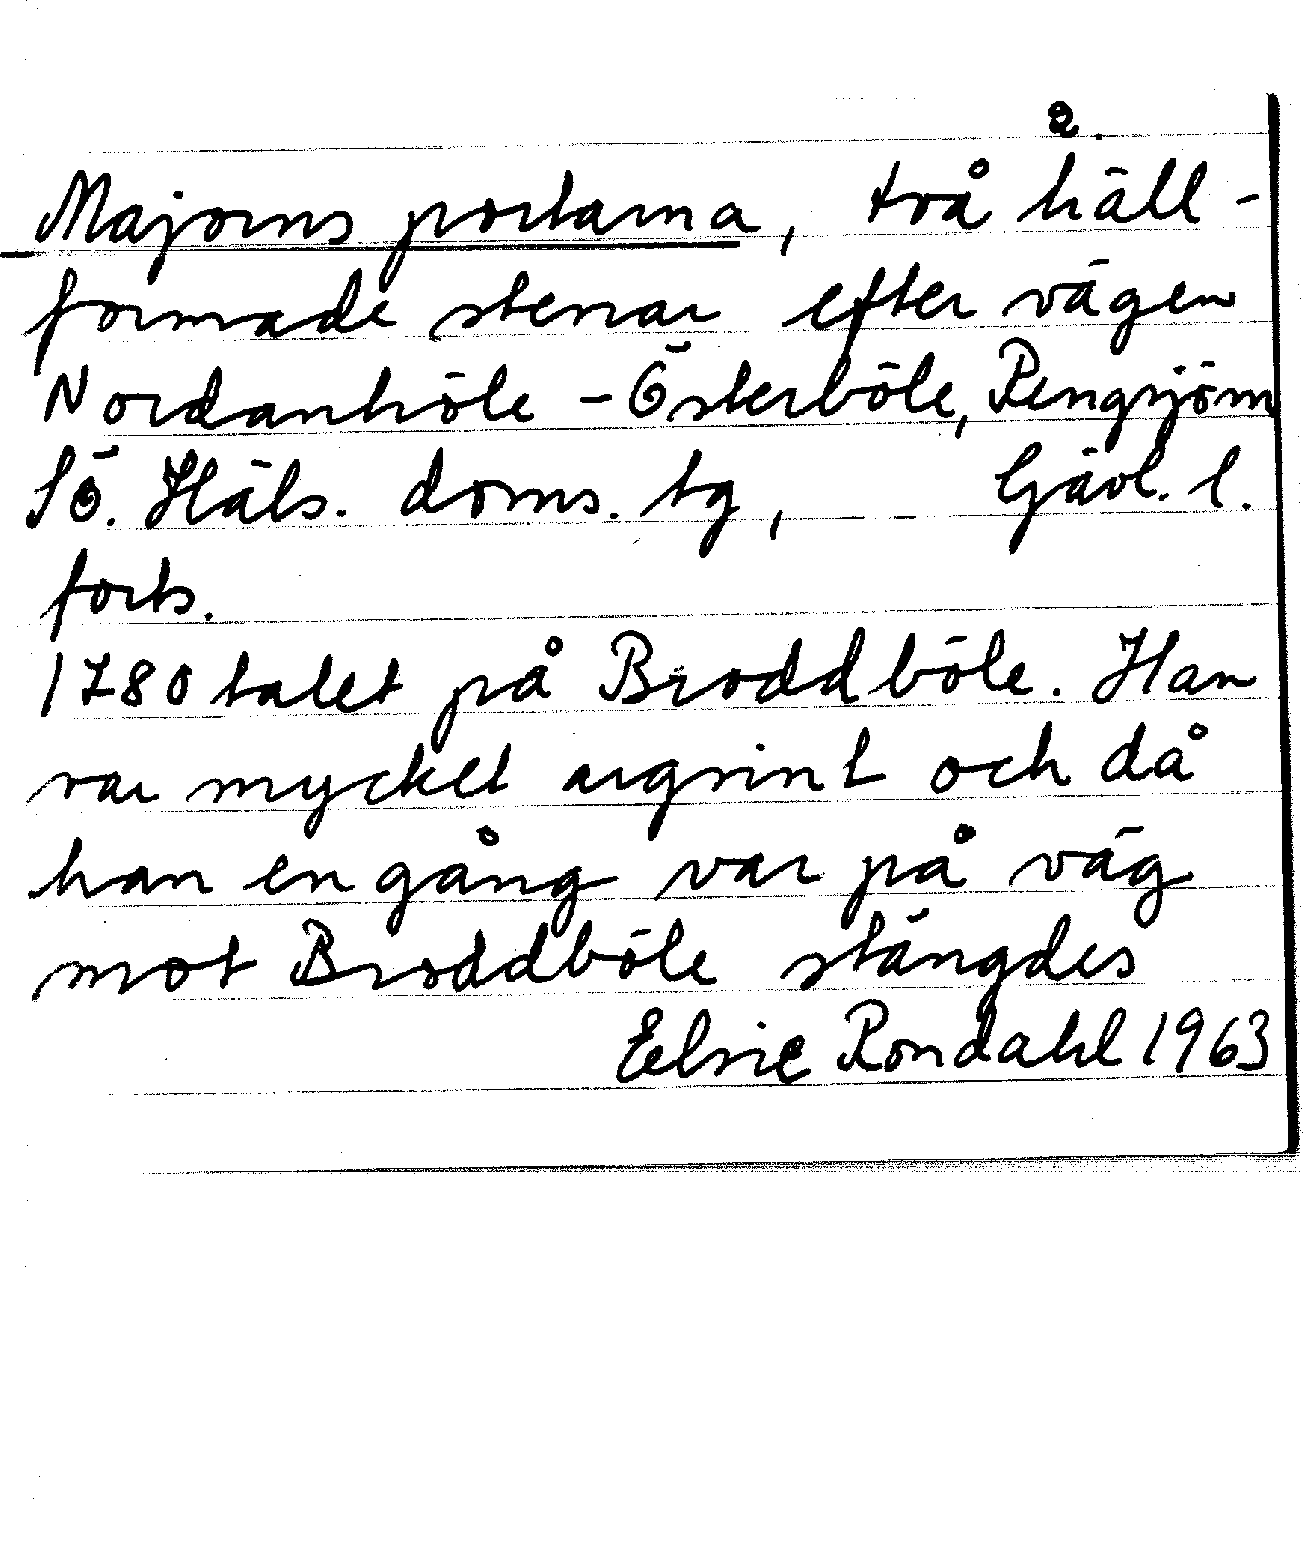 2.
Majorns portarna, två häll-
formade stenar efter vägen
Nordanhöle - Österböle, Rengsjö sn
Sö. Häls. doms. tg, Gävl. l.
forts.
1780 talet på Broddböle. Han
var mycket argsint och då
han en gång var på väg
mot Broddböle stängdes
Elsie Rondahl 1963